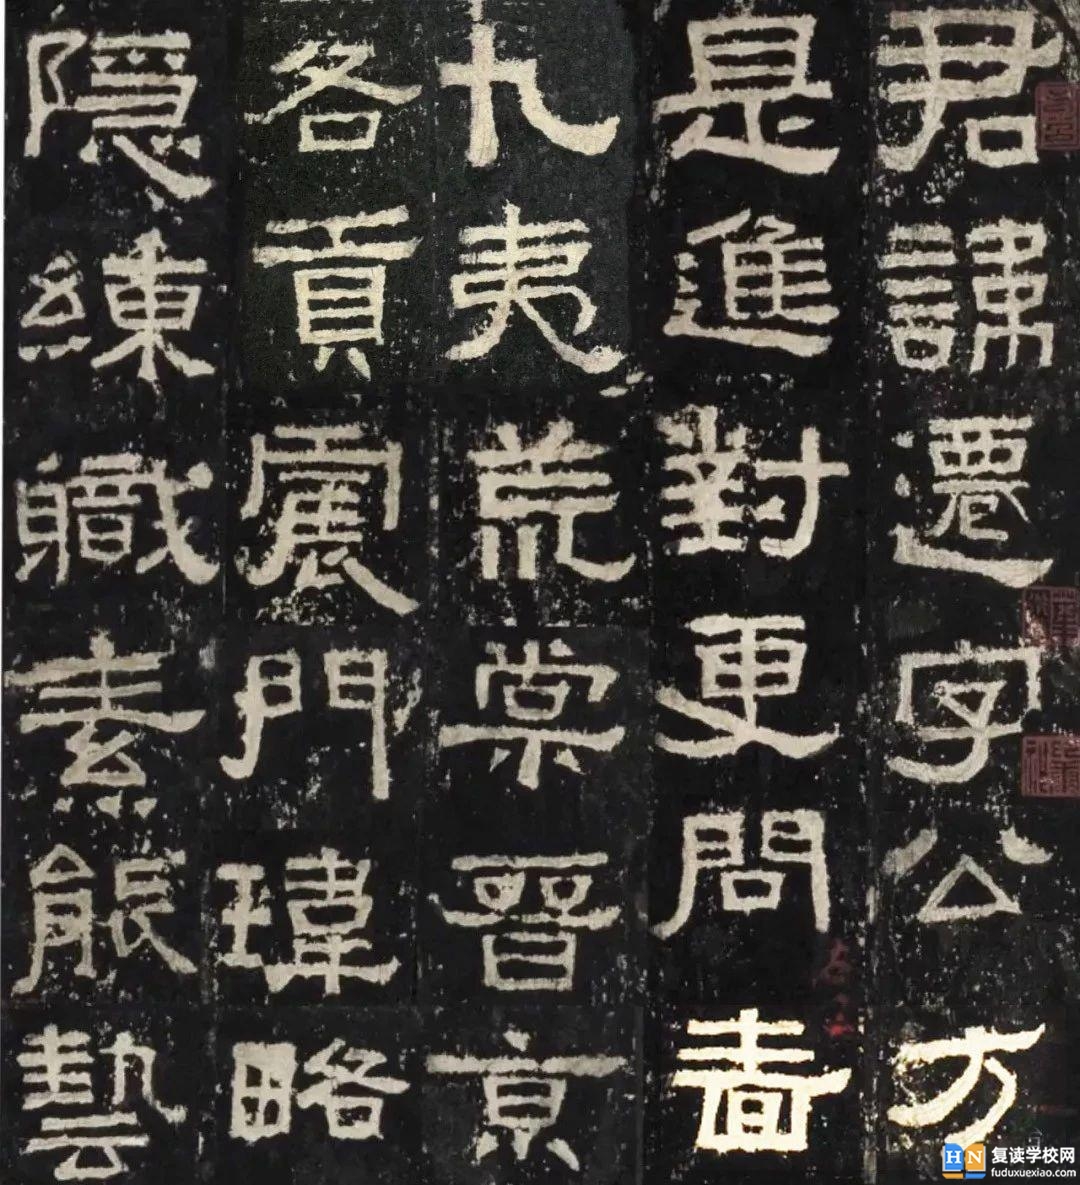 君諱遷字公方
是進對更問嗇
九夷荒棠晉京
各貢震門瑋略
隱練職素能藝
復读学校网
fuduxuexiao.com